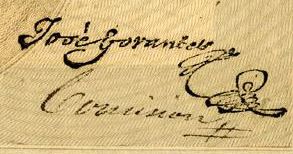 José Gorantes
Comision